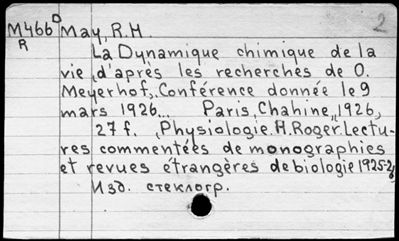 2
M466 May, R.H.
R
La Dynamique chimique de la
vie d'après les recherches de O.
Meyerhof,. Conférence donnée le 9
mars 1926... Paris, Chahine, 1926,
27 f. Physiologie. H. Roger. Lectu-
res commentées de monographies
et revues étrangères de biologie 1925-26
Изд. стеклогр.